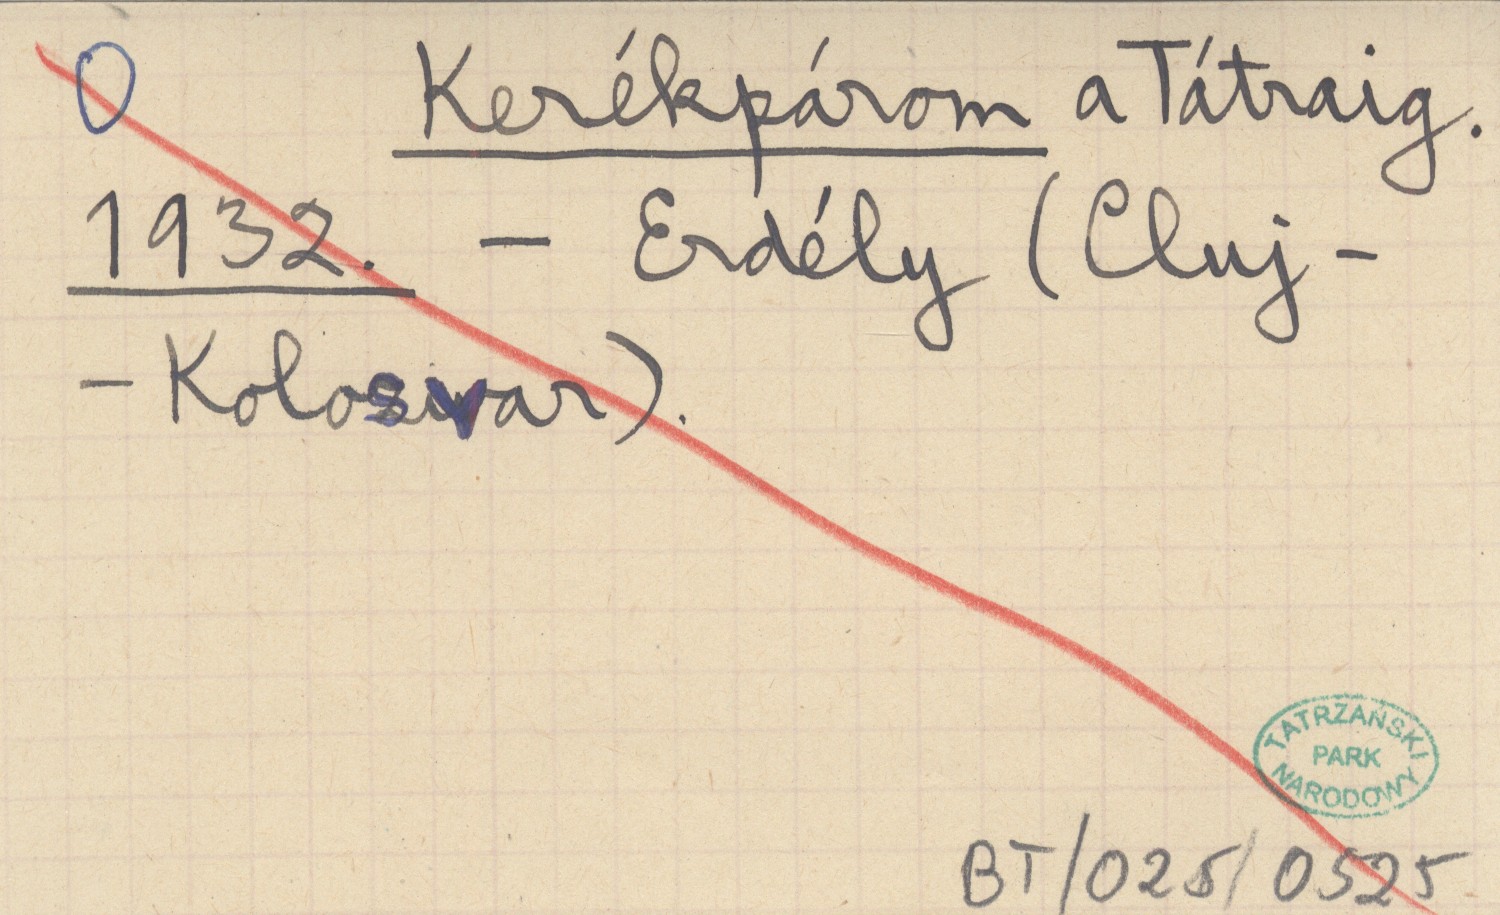 0 Kerékpárom a Tátraig.
1932. – Erdély (Cluj -
- Kolosvar).
TATRZAŃSKI
PARK
NARODOWY
BT/025/0525